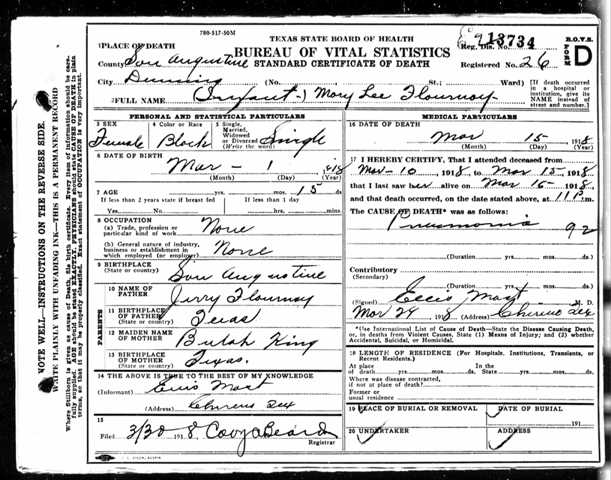 780-517-50M
TEXAS STATE BOARD OF HEALTH
BUREAU OF VITAL STATISTICS
STANDARD CERTIFICATE OF DEATH
Reg. Dis. No. 13734
Registered No. 26
B.O.V.S.
FORM D
1 PLACE OF DEATH
County San Augustine
City Denning (No. St.; Ward)
[If death occurred in a hospital or institution, give its NAME instead of street and number.]
2 FULL NAME (Infant) Mary Lee Flournoy
PERSONAL AND STATISTICAL PARTICULARS
3 SEX Female
4 Color or Race Black
5 Single, Married, Widowed or Divorced (Write the word) Single
6 DATE OF BIRTH
Mar - 1 1918
(Month) (Day) (Year)
7 AGE yrs. mos. 15 ds.
If less than 2 years state if breast fed
Yes No
If less than 1 day
hrs. min.
8 OCCUPATION
(a) Trade, profession or particular kind of work None
(b) General nature of industry, business or establishment in which employed (or employer) None
9 BIRTHPLACE
(State or country) San Augustine
PARENTS
10 NAME OF FATHER Jerry Flournoy
11 BIRTHPLACE OF FATHER (State or country) Texas
12 MAIDEN NAME OF MOTHER Bulah King
13 BIRTHPLACE OF MOTHER (State or country) Texas.
14 THE ABOVE IS TRUE TO THE BEST OF MY KNOWLEDGE
(Informant) Mast
(Address) Chireno Tex
15
Filed 3/30 1918
Registrar
MEDICAL PARTICULARS
16 DATE OF DEATH
Mar 15- 1918
(Month) (Day) (Year)
17 I HEREBY CERTIFY, That I attended deceased from
Mar-10, 1918, to Mar 15 1918
that I last saw her alive on Mar 15- 1918
and that death occurred, on the date stated above, at 11 P.m.
The CAUSE OF DEATH* was as follows:
Pneumonia 92
(Duration) yrs. mos. ds.
Contributory
(Secondary)
(Duration) yrs. mos. ds.
(Signed) Mast M. D.
Mar 24 1918 (Address) Chireno Tex
*Use International List of Cause of Death—State the Disease Causing Death, or, in deaths from Violent Causes, State (1) Means of Injury; and (2) whether Accidental, Suicidal, or Homicidal.
18 LENGTH OF RESIDENCE (For Hospitals, Institutions, Transients, or Recent Residents.)
At place of death yrs. mos. ds. In the State yrs. mos. ds.
Where was disease contracted, if not at place of death?
Former or usual residence
19 PLACE OF BURIAL OR REMOVAL
DATE OF BURIAL
191
20 UNDERTAKER
ADDRESS
NOTE WELL—INSTRUCTIONS ON THE REVERSE SIDE.
WRITE PLAINLY WITH UNFADING INK—THIS IS A PERMANENT RECORD
Where Stillborn is given as cause of Death, file birth certificate. Every item of information should be carefully supplied. AGE should be stated EXACTLY. PHYSICIANS should state CAUSE OF DEATH in plain terms, so that it may be properly classified. Exact statement of OCCUPATION is very important.